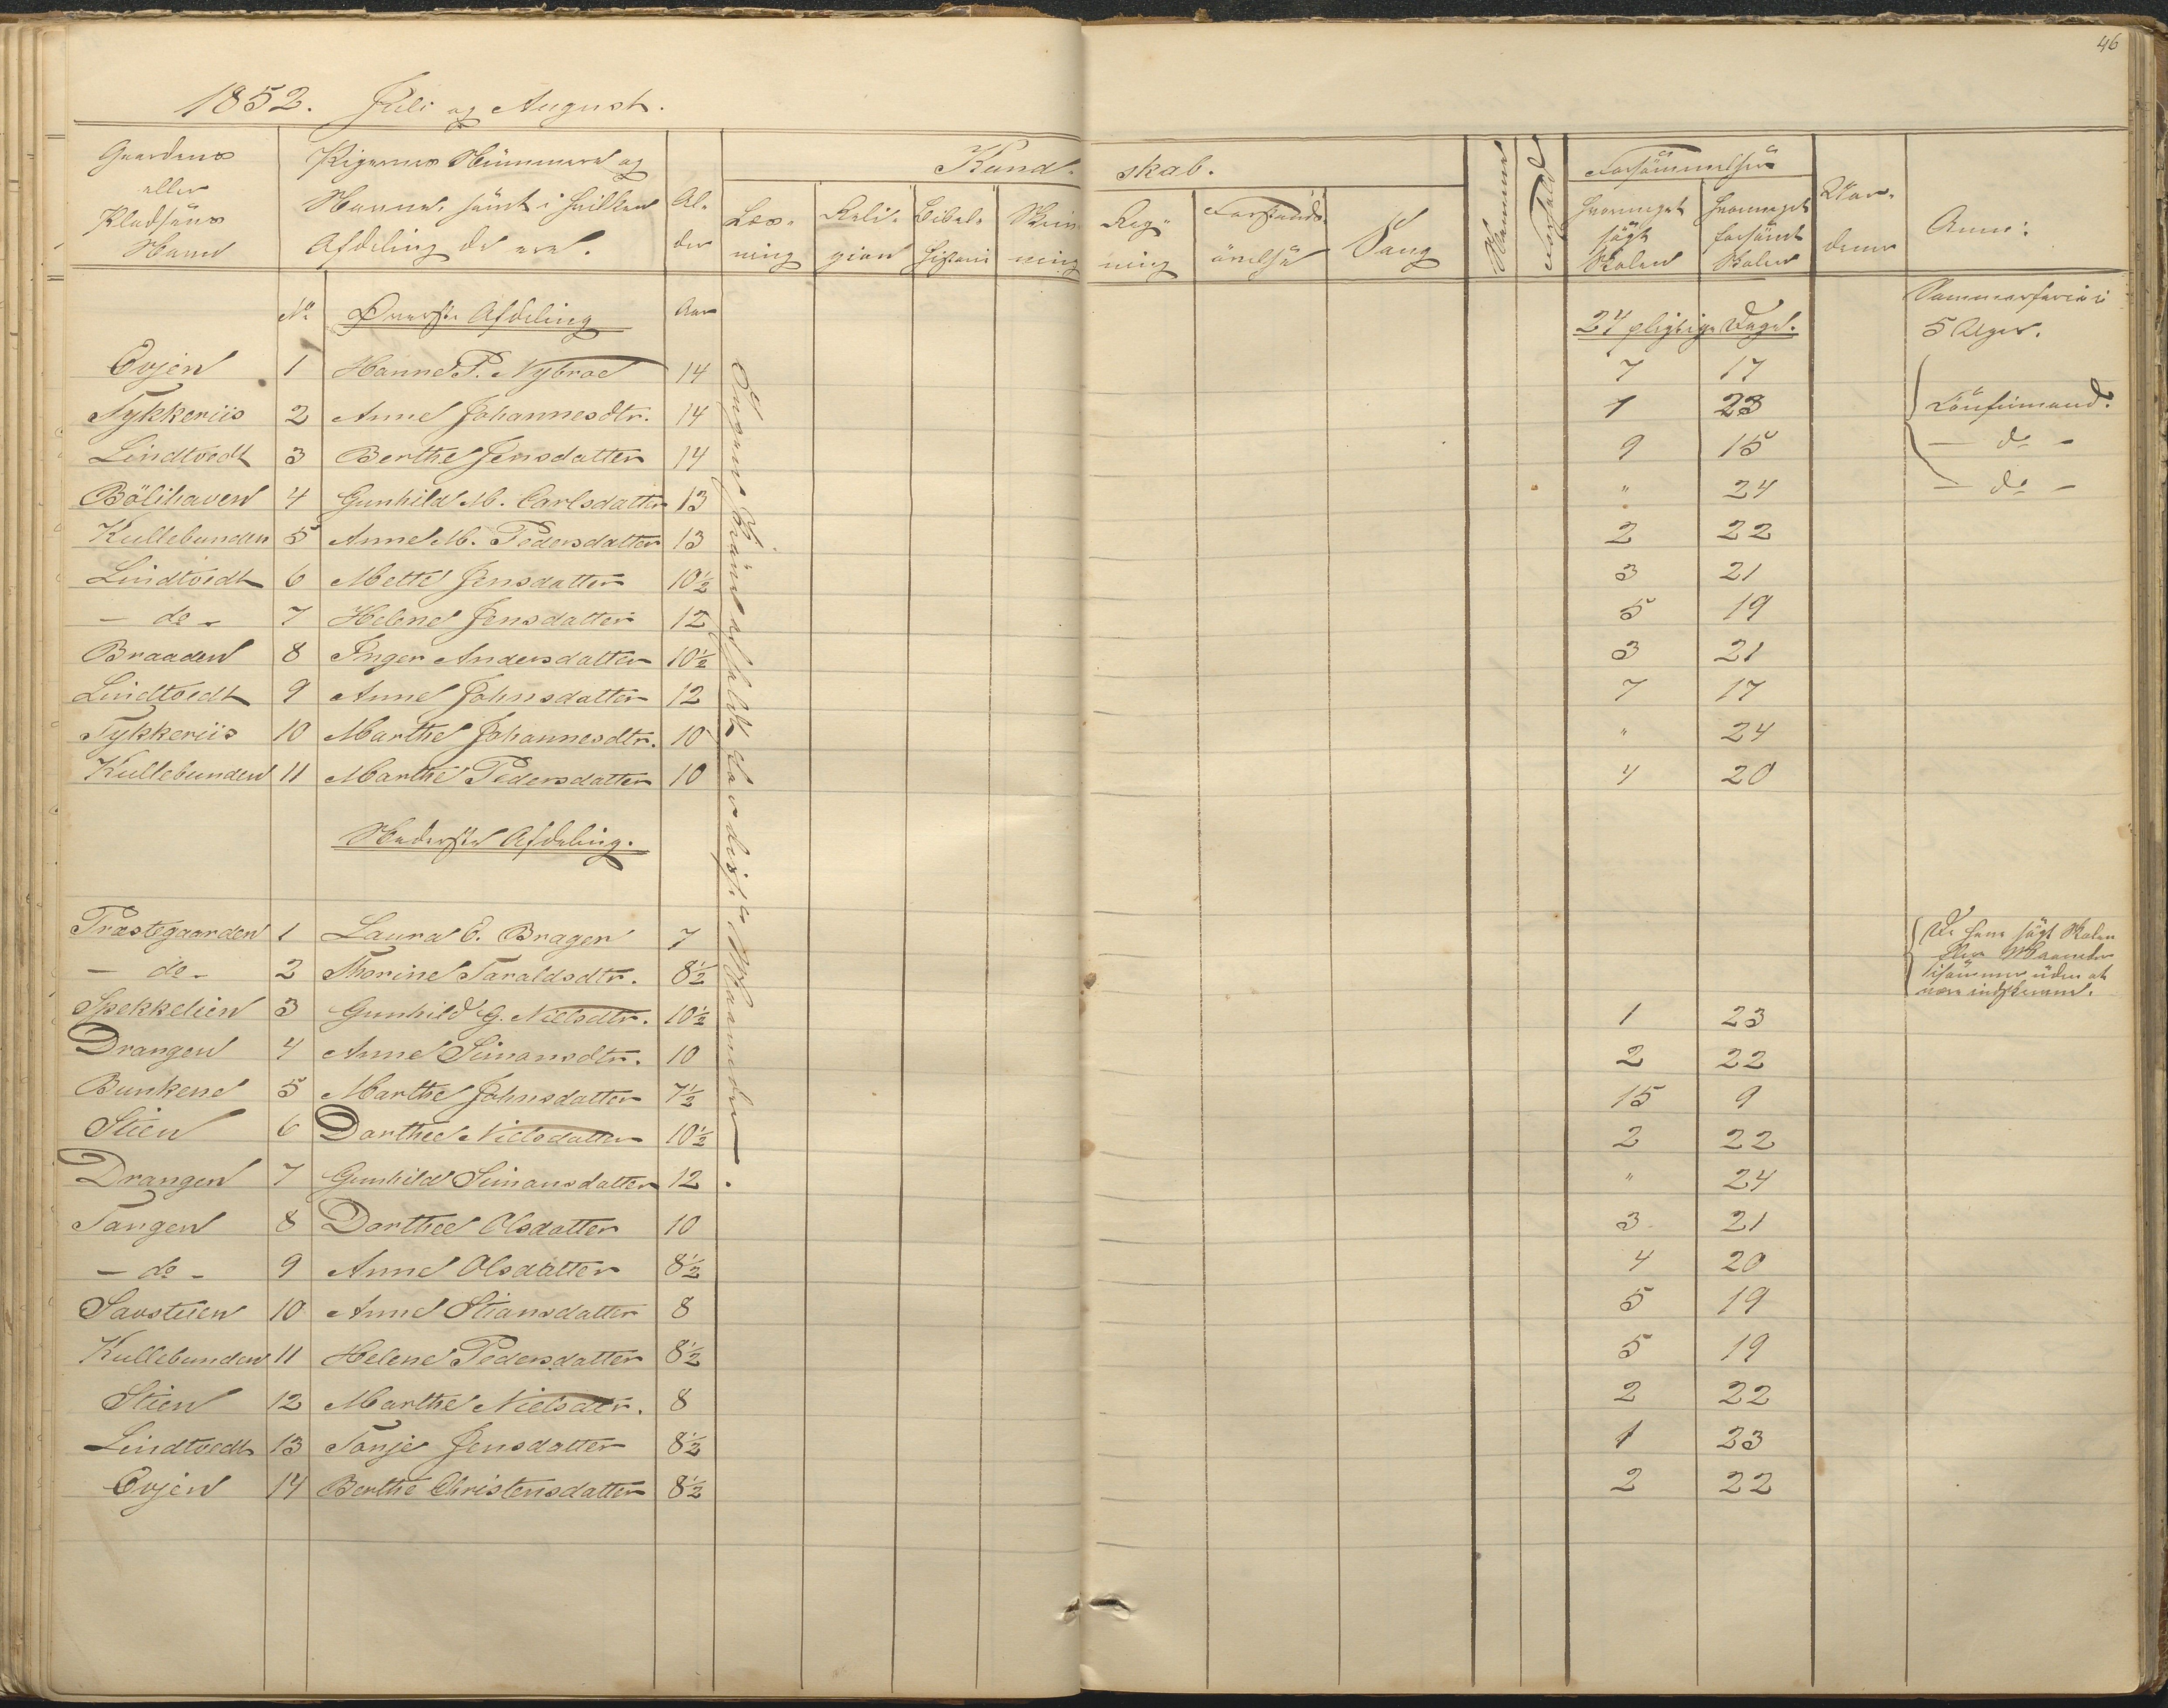 46
1852. Juli og August.
Gaardens eller Pladsens Navn
Pigernes Nummere og Navne, samt i hvilken Afdeling de ere.
Alder
Kundskab.
Læsning
Religion
Bibelhistorie
Skrivning
Regning
Forstandsövelse
Sang
Nemme
Forhold
Forsömmelser
hvormeget sögt Skolen
hvormeget forsömt Skolen
Anm:
No Överste Afdeling Aar 24 pligtige Dage. Sommerferie i 5 Uger.
Evjen 1 Hanne P. Nybroe 14 7 17
Tykkeriis 2 Anne Johannesdtr. 14 1 23 Confirmand.
Lindtvedt 3 Berthe Jensdatter 14 9 15 — do —
Bölihaven 4 Gunhild M. Carlsdatter 13 " 24 — do —
Kullebunden 5 Anne M. Pedersdatter 13 2 22
Lindtvedt 6 Mette Jensdatter 10½ 3 21
— do — 7 Helene Jensdatter 12 5 19
Braaden 8 Inger Andersdatter 10½ 3 21
Lindtvedt 9 Anne Johnsdatter 12 7 17
Tykkeriis 10 Marthe Johannesdtr. 10 " 24
Kullebunden 11 Marthe Pedersdatter 10 4 20
Ingen Pröve afholdt for disse Maaneder.
Nederste Afdeling.
Præstegaarden 1 Laura E. Brager 7
— do — 2 Thorine Taraldsdtr. 8½
De have sögt Skolen
flere Maaneder
isammen uden at
være indskrevne.
Spekkelien 3 Gunhild G. Nielsdtr. 10½ 1 23
Drangen 4 Anne Simonsdtr. 10 2 22
Bunkene 5 Marthe Johnsdatter 7½ 15 9
Stien 6 Darthee Nielsdatter 10½ 2 22
Drangen 7 Gunhild Simonsdatter 12 " 24
Tangen 8 Darthee Olsdatter 10 3 21
— do — 9 Anne Olsdatter 8½ 4 20
Savstuen 10 Anne Stiansdatter 8 5 19
Kullebunden 11 Helene Pedersdatter 8½ 5 19
Stien 12 Marthe Nielsdtr. 8 2 22
Lindtvedt 13 Tonje Jensdatter 8½ 1 23
Evjen 14 Berthe Christensdatter 8½ 2 22